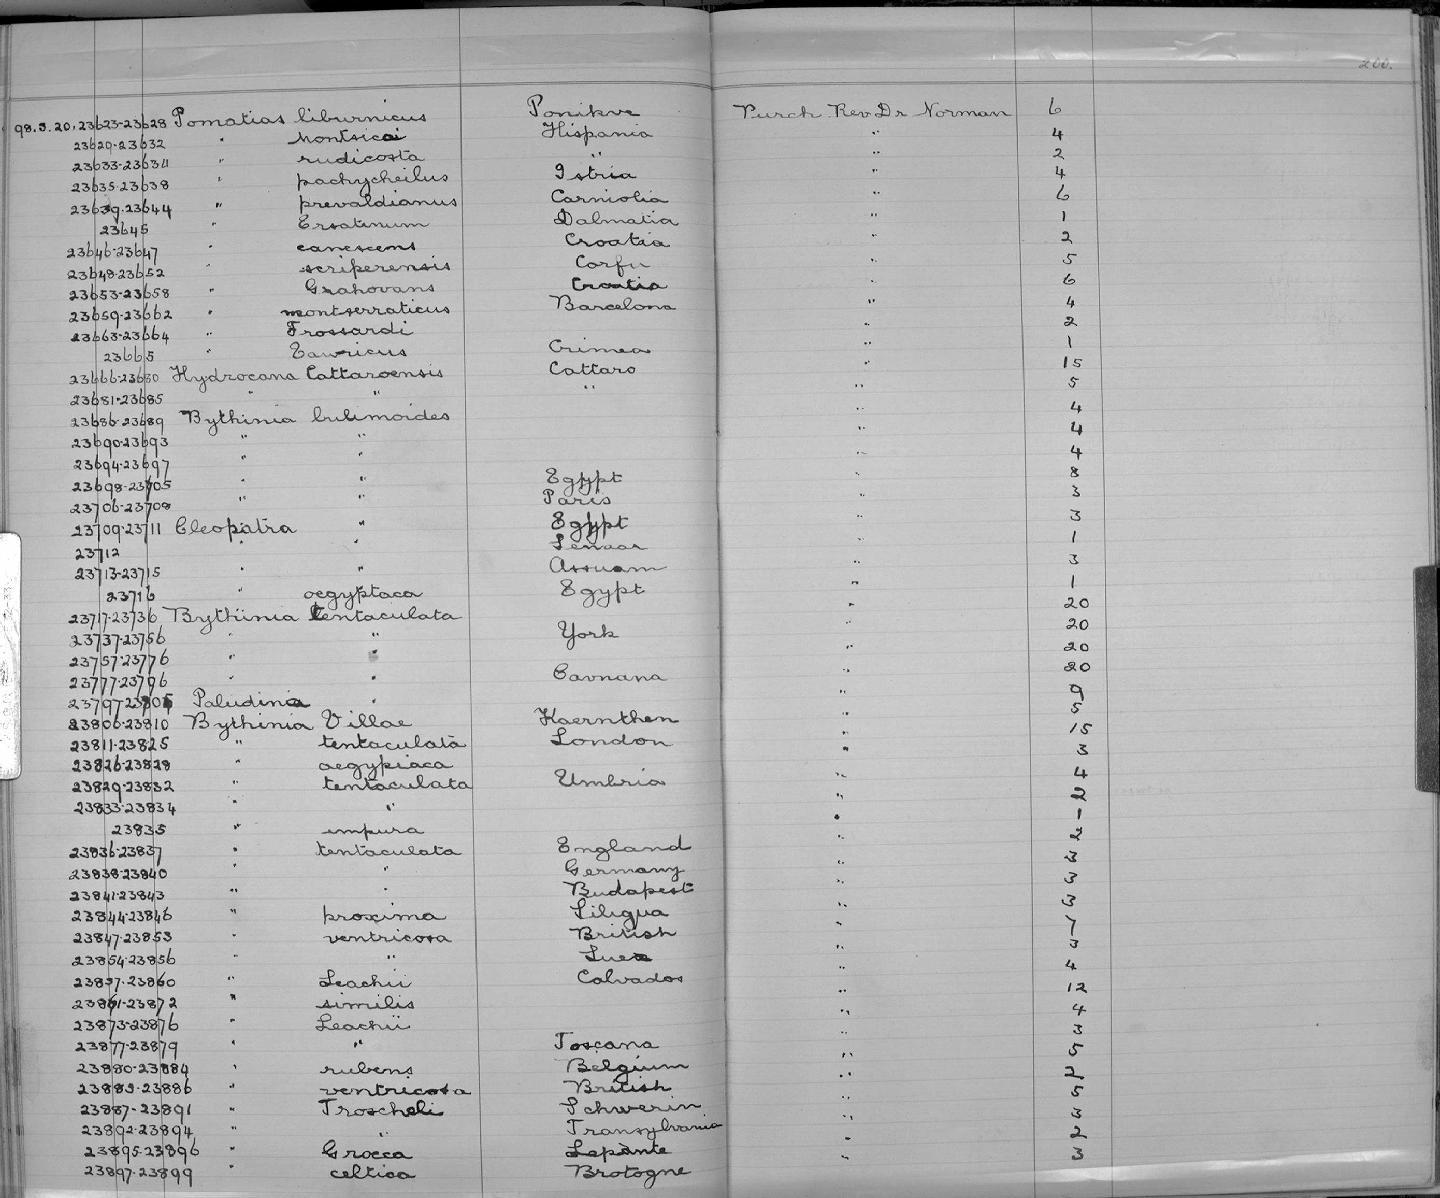 200.
98.5.20.23623-23628 Pomatias liburnicus Ponikve Purch Rev Dr Norman 6
23629-23632 " Montsicci Hispania " 4
23633-23634 " rudicosta " " 2
23635-23638 " pachycheilus Istria " 4
23639-23644 " prevaldianus Carniolia " 6
23645 " Dalmatia " 1
23646-23647 " canescens Croatia " 2
23648-23652 " scriperensis Corfu " 5
23653-23658 " Grahovans Croatia " 6
23659-23662 " montserraticus Barcelona " 4
23663-23664 " Frossardi " 2
23665 " Tauricus Crimea " 1
23666-23680 Hydrocana Cattaroensis Cattaro " 15
23681-23685 " " " " 5
23686-23689 Bythinia bulimoides " 4
23690-23693 " " " 4
23694-23697 " " " 4
23698-23705 " " Egypt " 8
23706-23708 " " Paris " 3
23709-23711 Cleopatra " Egypt " 3
23712 " " Senaar " 1
23713-23715 " " Assuam " 3
23716 " aegyptaca Egypt " 1
23717-23736 Bythinia tentaculata " 20
23737-23756 " " York " 20
23757-23776 " " " 20
23777-23796 " " Cavnana " 20
23797-23805 Paludinia " " 9
23806-23810 Bythinia Villae Kaernthen " 5
23811-23825 " tentaculata London " 15
23826-23828 " aegypiaca 3
23829-23832 " tentaculata Umbria " 4
23833-23834 " " " 2
23835 " impura " 1
23836-23837 " tentaculata England " 2
23838-23840 " " Germany " 3
23841-23843 " " Budapest " 3
23844-23846 " proxima Siligua " 3
23847-23853 " ventricosa British " 7
23854-23856 " " " 3
23857-23860 " Leachii Calvados " 4
23861-23872 " similis " 12
23873-23876 " Leachii " 4
23877-23879 " " Toscana " 3
23880-23884 " rubens Belgium " 5
23885-23886 " ventricosa British " 2
23887-23891 " Troscheli Schwerin " 5
23892-23894 " " Transylvania " 3
23895-23896 " Grocca Lepante " 2
23897-23899 " celtica Brotogne " 3